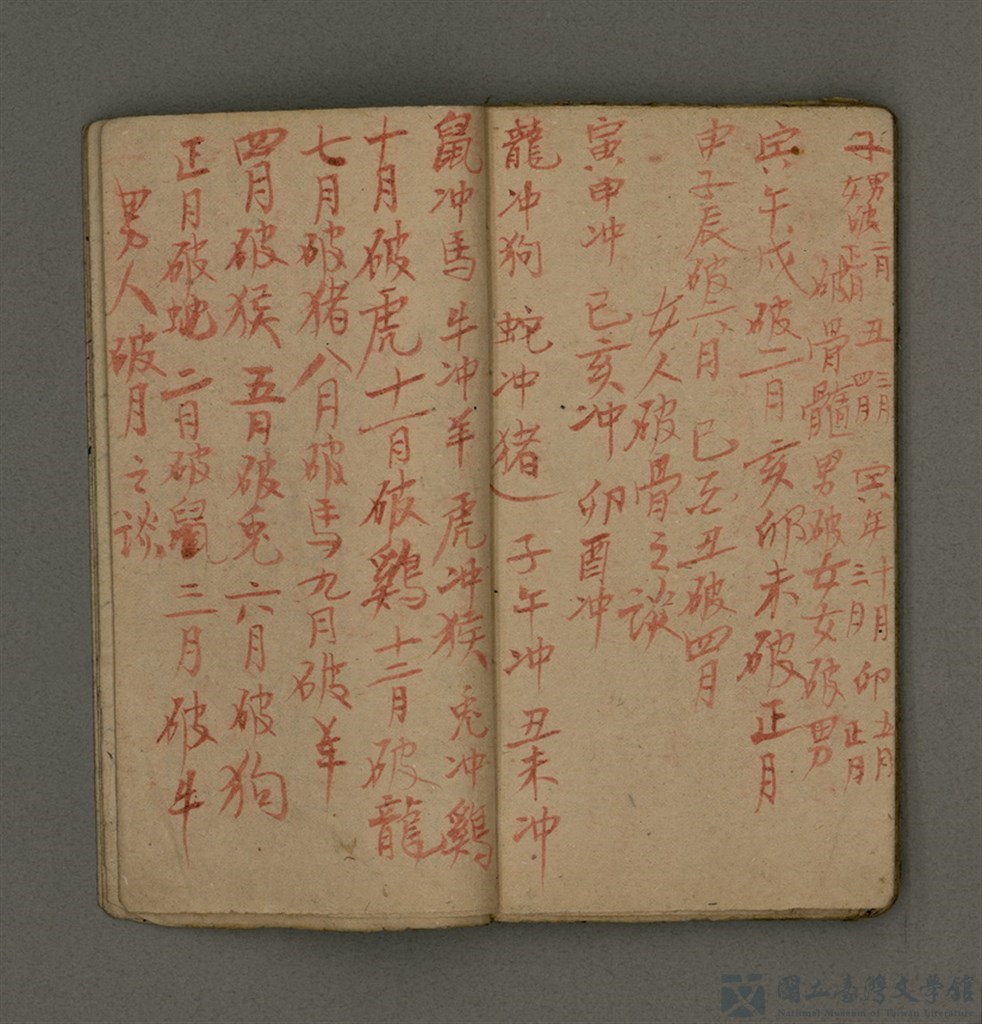 男人破月之談
正月破蛇 二月破鼠 三月破牛
四月破猴 五月破兎 六月破狗
七月破猪 八月破馬 九月破羊
十月破虎 十一月破鷄 十二月破龍
鼠冲馬 牛冲羊 虎冲猴 兎冲鷄
龍冲狗 蛇冲猪 子午冲 丑未冲
寅申冲 巳亥冲 卯酉冲
女人破骨之談
申子辰破六月 巳酉丑破四月
寅午戌破二月 亥卯未破正月
破骨髓男破女女破男
子 男破二月 女破正月 丑 三月 四月 寅年 十月 三月 卯 五月 正月
國立臺灣文學館
National Museum of Taiwan Literature